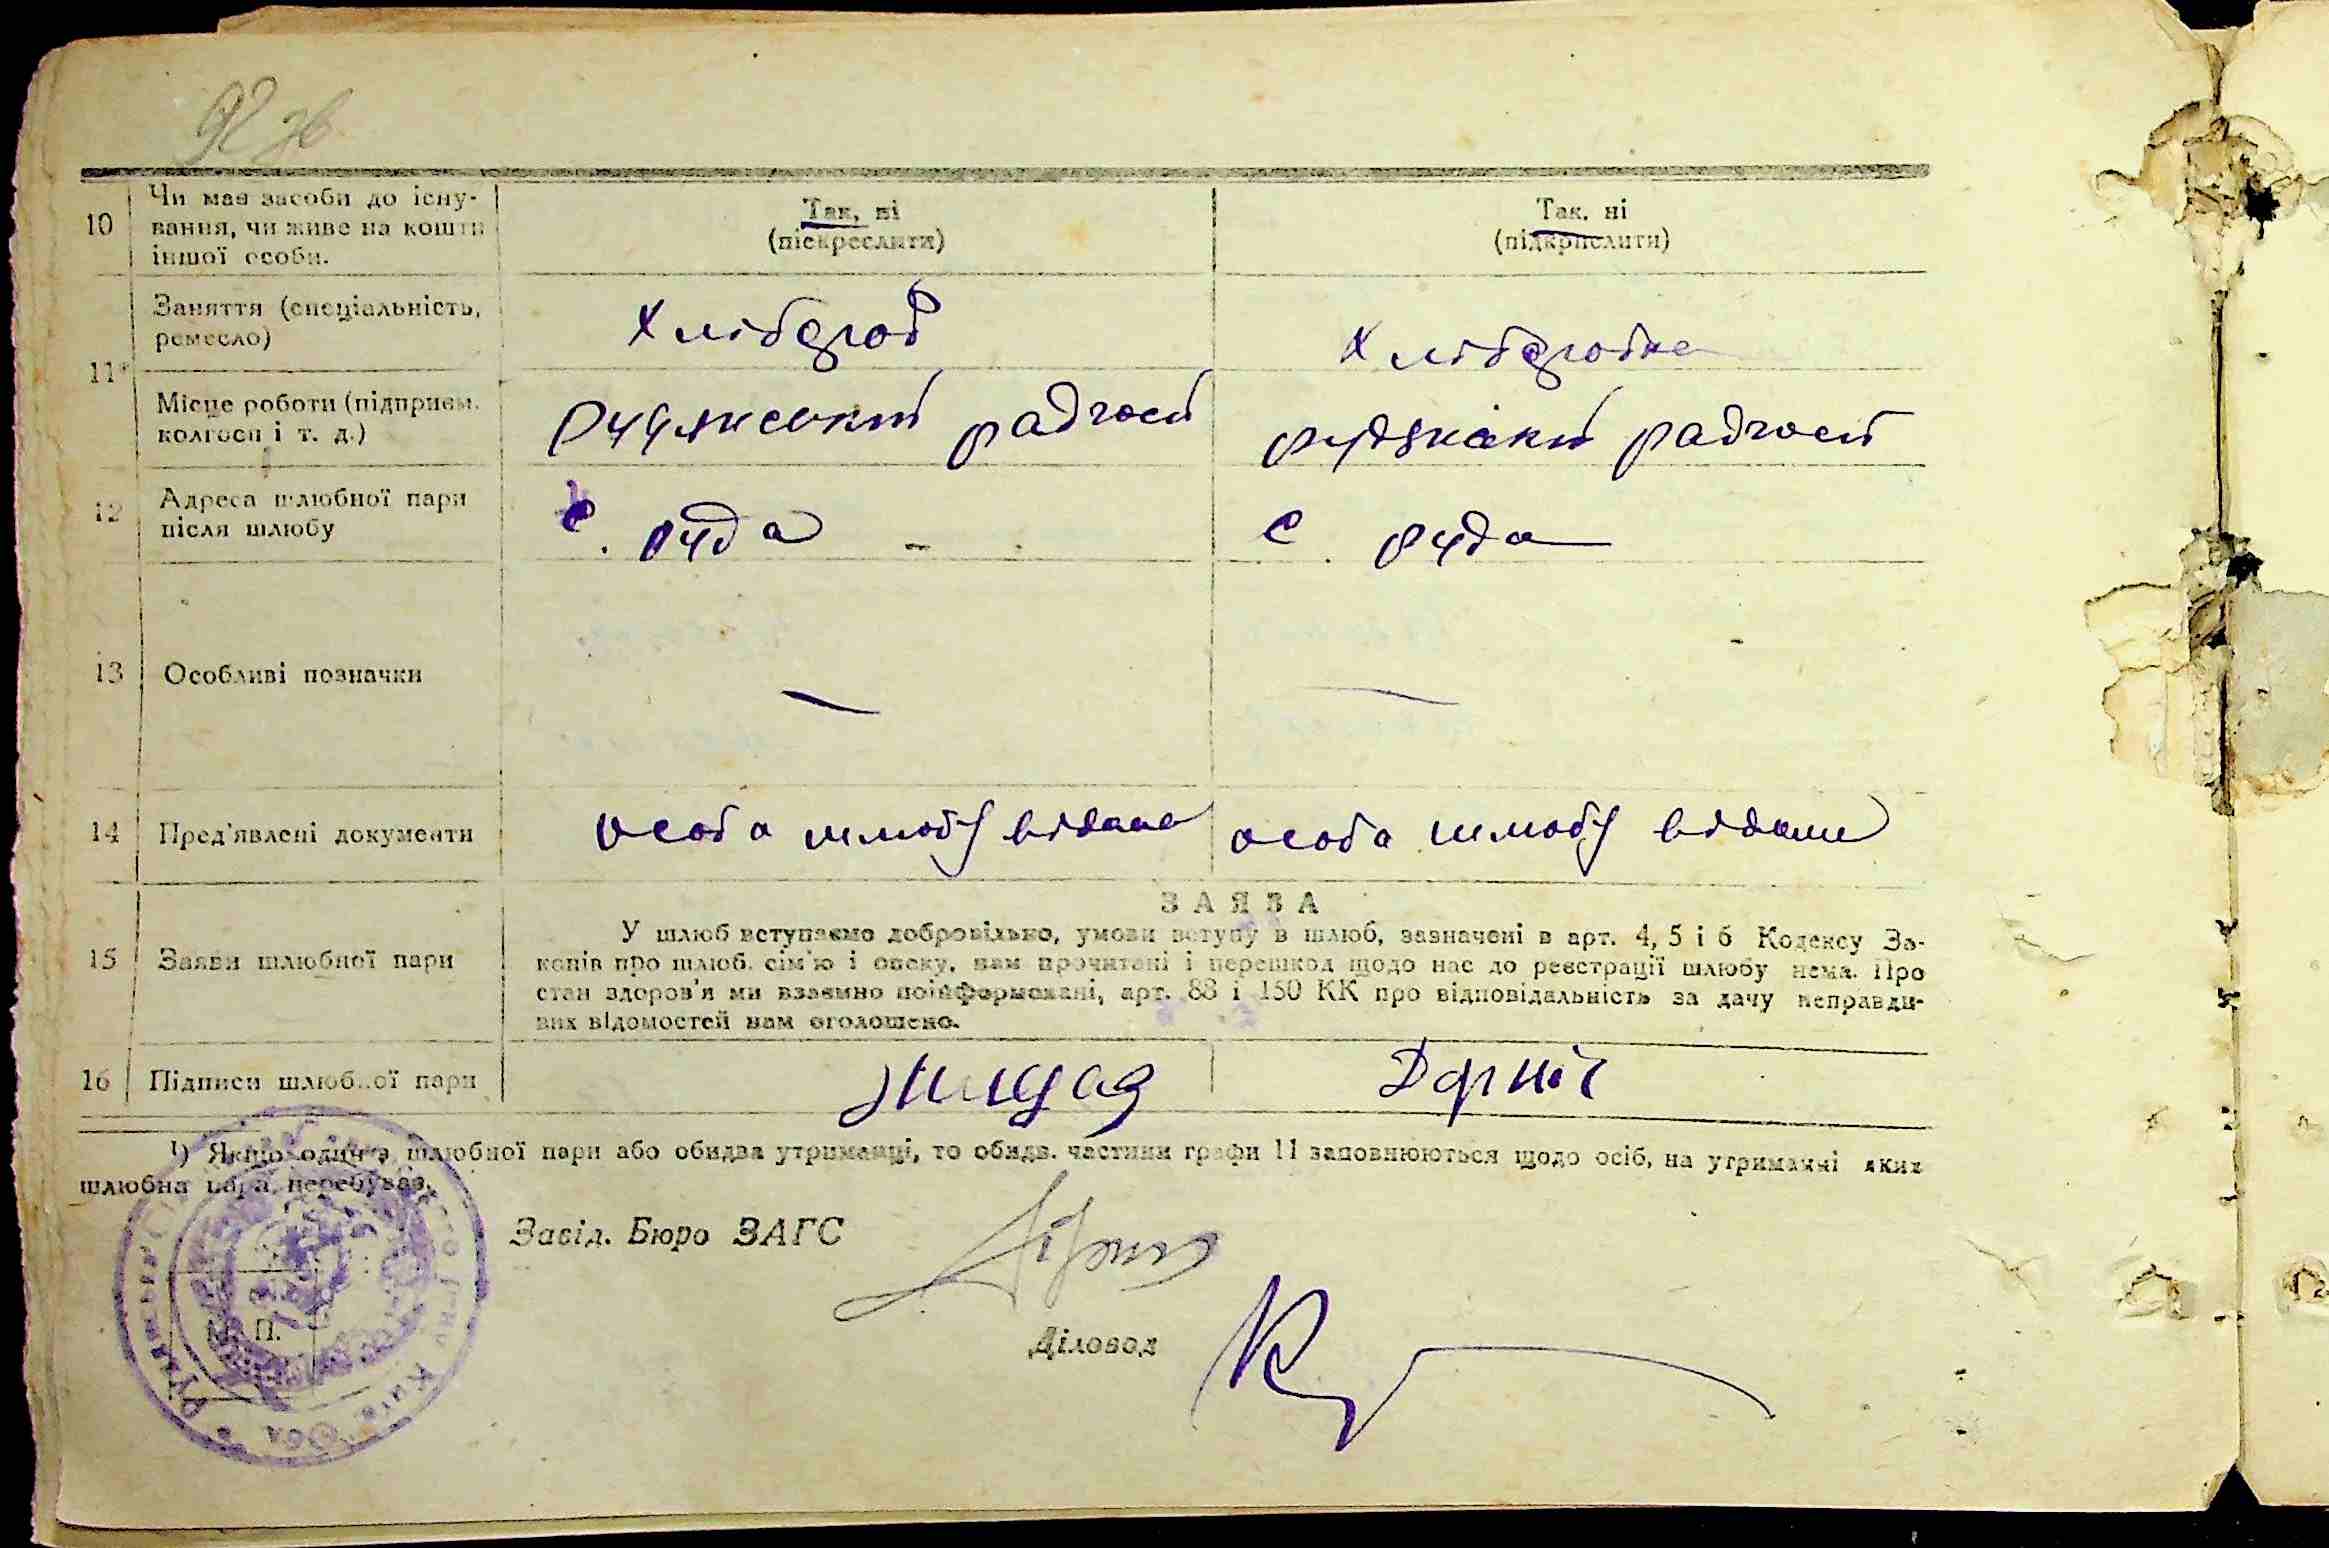 92 зв
10
Чи має засоби до існу-
вання, чи живе на кошти
іншої особи.
Так, ні
(піскреслити)
Так, ні
(підкрислити)
11
Заняття (спеціальність,
ремесло)
Хлібороб
Хліборобка
Місце роботи (підприєм.
колгосп і т. д.)
Рудянський радгосп
радгосп
12
Адреса шлюбної пари
після шлюбу
с. Руда
с. Руда
13
Особливі позначки
—
—
14
Пред'явлені документи
особа шлюбу відома
особа шлюбу відома
15
Заяви шлюбної пари
ЗАЯВА
У шлюб вступаємо добровільно, умови вступу в шлюб, зазначені в арт. 4, 5 і 6 Кодексу За-
конів про шлюб. сім'ю і опеку, нам прочитані і перешкод щодо нас до реєстрації шлюбу нема. Про
стан здоров'я ми взаємно поінформовані, арт. 88 і 150 КК про відповідальність за дачу неправди-
вих відомостей нам оголошено.
16
Підписи шлюбної пари
1) Якщо один з шлюбної пари або обидва утриманці, то обидв. частини графи 11 заповнюються щодо осіб, на утриманні яких
шлюбна пара перебуває.
Завід. Бюро ЗАГС
Діловод
М. П.